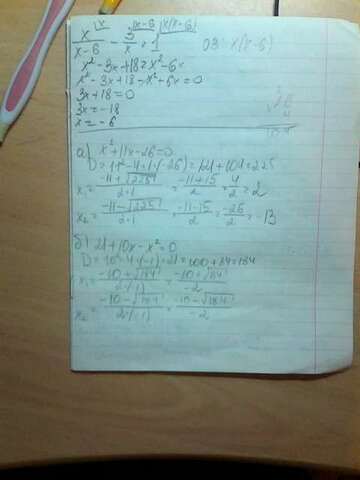 x/(x-6) - 3/x = 1 ОЗ: x(x-6)
x² - 3x + 18 = x² - 6x
x² - 3x + 18 - x² + 6x = 0
3x + 18 = 0
3x = -18
x = -6
а) x² + 11x - 26 = 0
D = 11² - 4·1·(-26) = 121 + 104 = 225
x₁ = (-11+√225)/(2·1) = (-11+15)/2 = 4/2 = 2
x₂ = (-11-√225)/(2·1) = (-11-15)/2 = -26/2 = -13
б) 21 + 10x - x² = 0
D = 10² - 4·(-1)·21 = 100 + 84 = 184
x₁ = (-10+√184)/(2·(-1)) = (-10+√184)/-2
x₂ = (-10-√184)/(2·(-1)) = (-10-√184)/-2